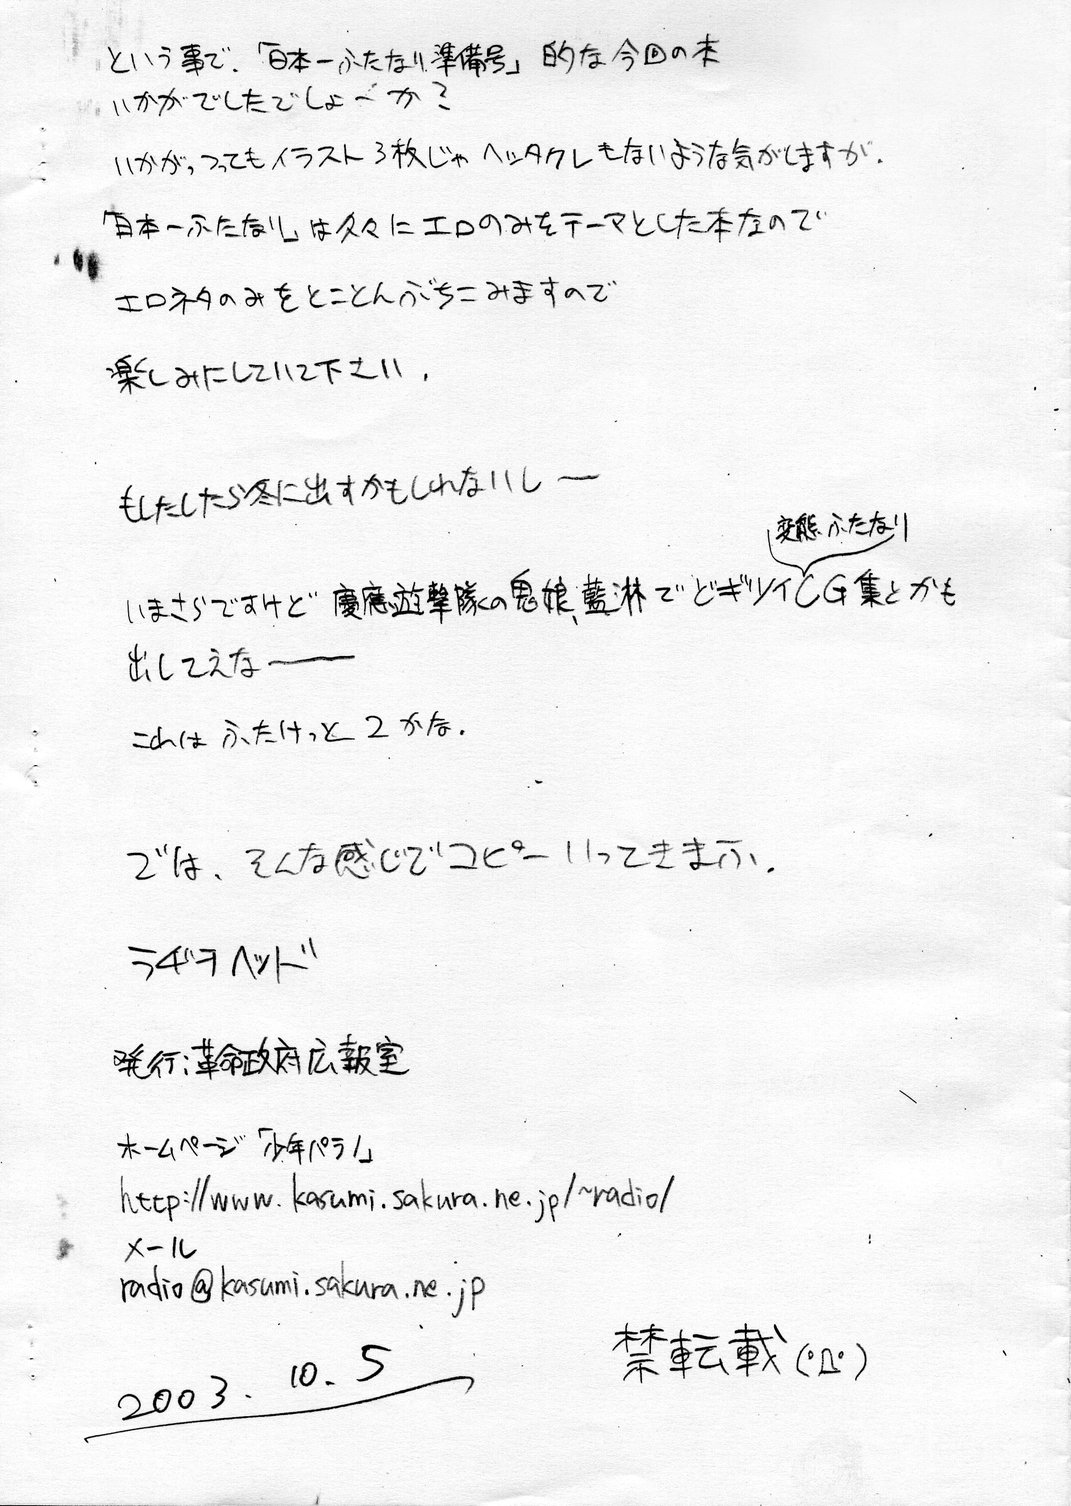 という事で、「日本一ふたなり準備号」的な今回の本
いかがでしたでしょーか?
いかがっつってもイラスト3枚じゃヘッタクレもないような気がしますが.
「日本一ふたなり」は久々にエロのみをテーマとした本なので
エロネタのみをとことんぶちこみますので
楽しみにしていて下さい.
もしかしたら冬に出すかもしれないしー
変態ふたなり
いまさらですけど慶應遊撃隊の鬼娘、藍淋でどギツイCG集とかも
出してえなー
これはふたけっと2かな.
では、そんな感じでコピーいってきまふ.
ラヂヲヘッド
発行:革命政府広報室
ホームページ「少年パラノ」
http://www.kasumi.sakura.ne.jp/~radio/
メール
radio@kasumi.sakura.ne.jp
禁転載(゚Д゚)
2003.10.5